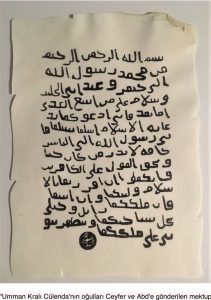 بسم الله الرحمن الرحيم
من محمد رسول الله
الى جيفر وعبد ابني الجلند
سلام على من اتبع الهدى
اما بعد فاني ادعوكما بد
عاية الاسلام اسلما تسلما فا
ني رسول الله الى الناس
كافة لانذر من كان حيا
ويحق القول على الكافرين
وانكما ان اقررتما بالا
سلام وليتكما وان ابيتما
بساحتكما وتظهر نبو
تي على ملككما
"Umman Kralı Cülenda'nın oğulları Ceyfer ve Abd'e gönderilen mektup